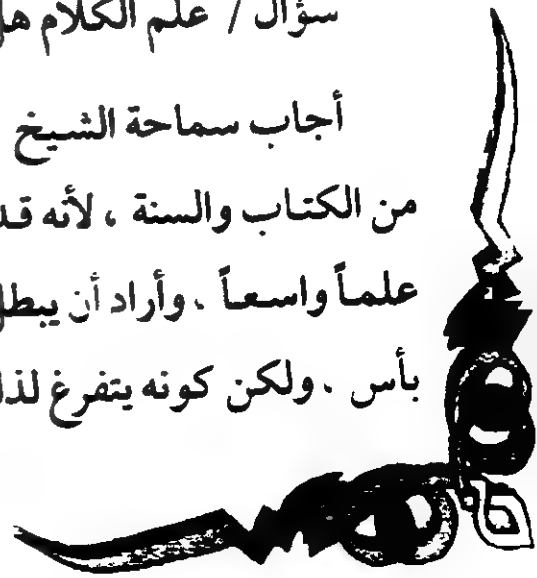 سؤال / علم الكلام هل
أجاب سماحة الشيخ
من الكتاب والسنة ، لأنه قد
علماً واسعاً ، وأراد أن يبطل
بأس ، ولكن كونه يتفرغ لذل